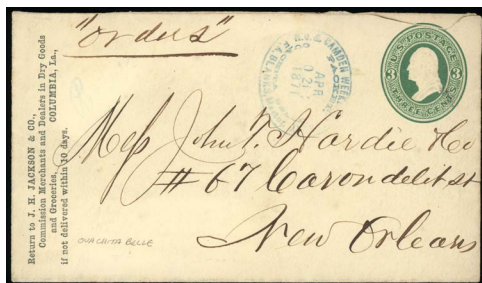 "Orders"
Return to J. H. JACKSON & CO.,
Commission Merchants and Dealers in Dry Goods
and Groceries, COLUMBIA, La.,
if not delivered within 10 days.
N.O. & CAMDEN WEEK
PACKET
APR
21
187
F. A. BLANKS
U.S. POSTAGE
3 3
THREE CENTS
Mess John T. Hardie & Co
# 67 Carondelit St
New Orleans
OUACHITA BELLE